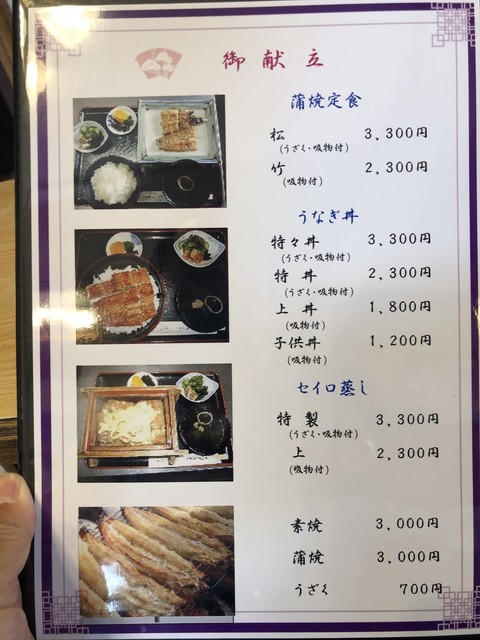 御献立
蒲焼定食
松 3,300円
(うざく・吸物付)
竹 2,300円
(吸物付)
うなぎ丼
特々丼 3,300円
(うざく・吸物付)
特丼 2,300円
(うざく・吸物付)
上丼 1,800円
(吸物付)
子供丼 1,200円
(吸物付)
セイロ蒸し
特製 3,300円
(うざく・吸物付)
上 2,300円
(吸物付)
素焼 3,000円
蒲焼 3,000円
うざく 700円